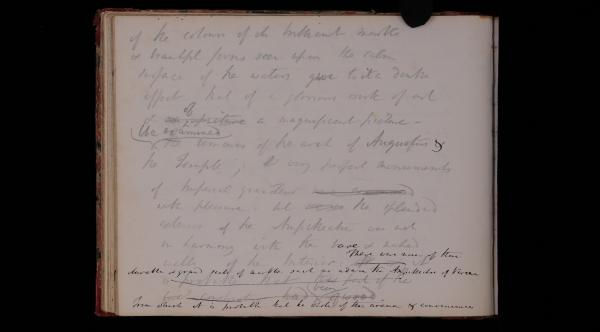 of the colours of the brilliant marble
& beautiful forms seen upon the calm
surface of the waters gave to it a double
effect, that of a glorious work of art
of
& of a magnificent picture –
We examined
the remains of the arch of Augustus &
the Temple, very perfect monuments
of Imperial grandeur
with pleasure. But the splendid
exterior of the Amphitheatre was not
in harmony with the bare & naked
walls of the Interior. There were none of those
durable & grand seats of marble such as adorn the Amphitheatre of Verona
from which it is probable that the whole of the arena & conveniences